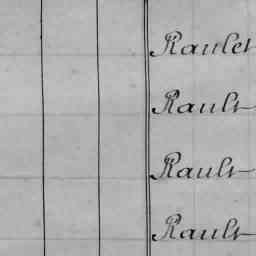 Raulet
Rault
Rault
Rault